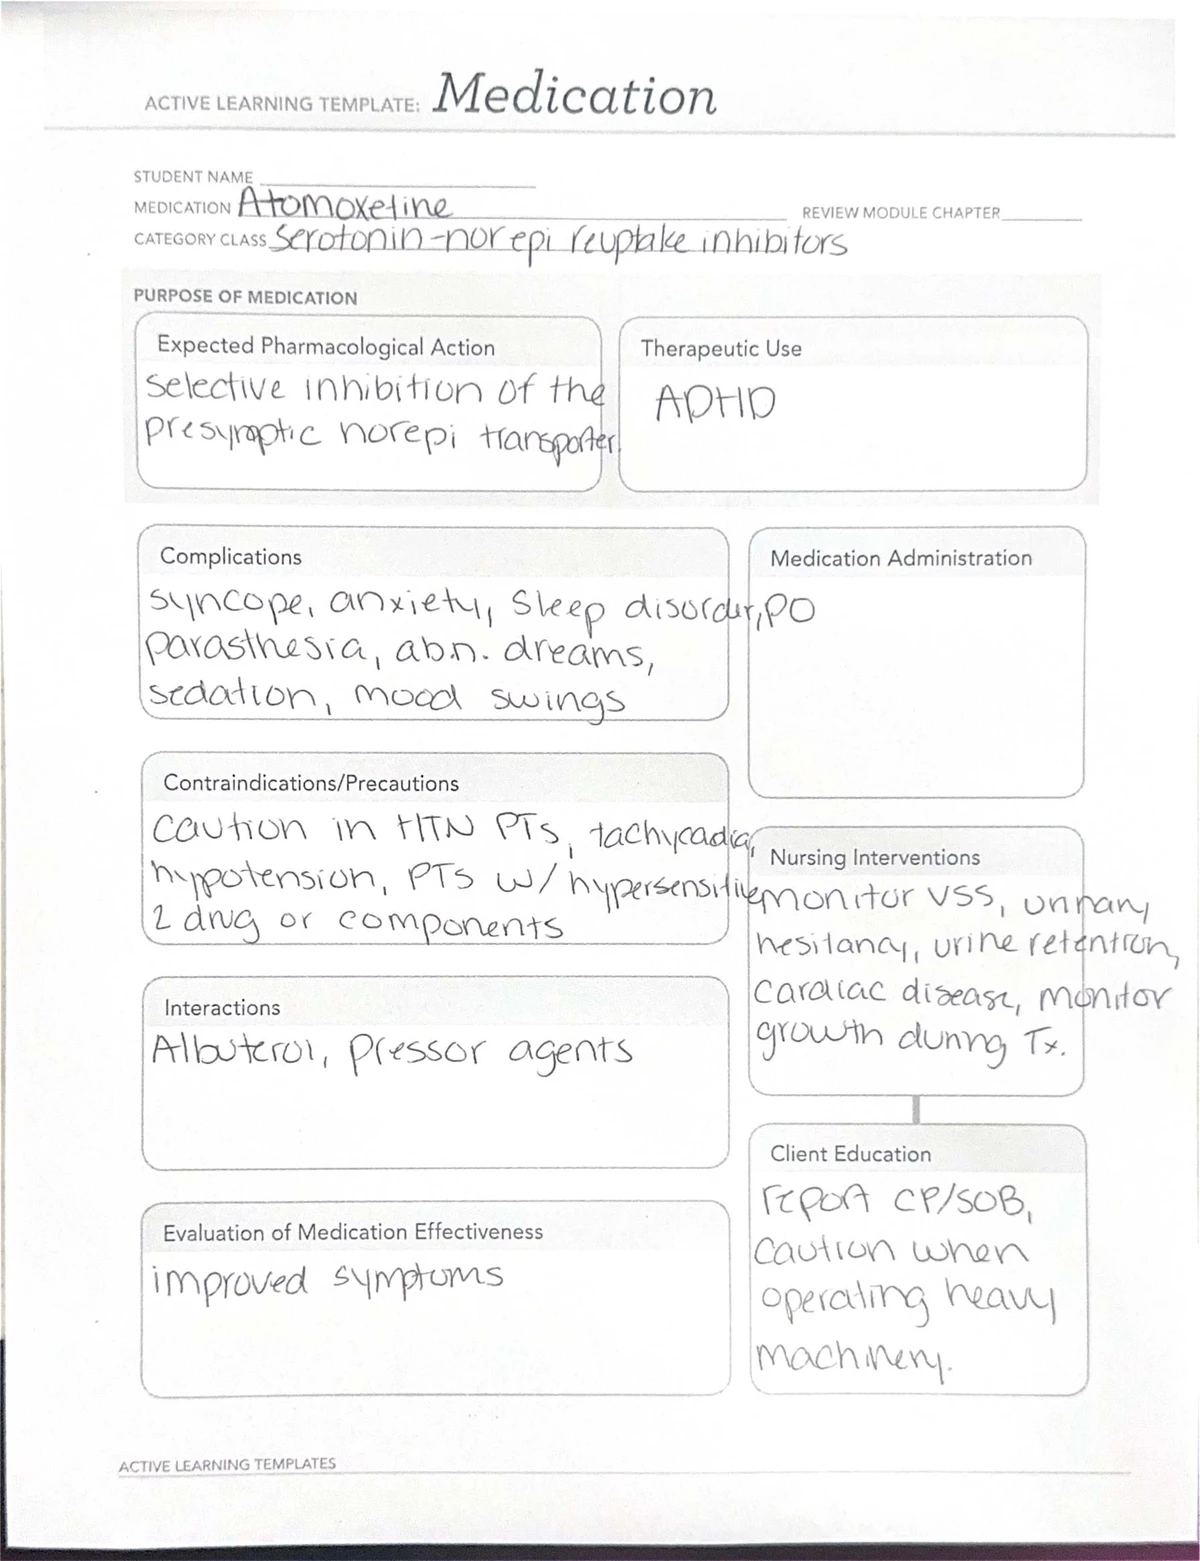 ACTIVE LEARNING TEMPLATE: Medication
STUDENT NAME
MEDICATION Atomoxetine
REVIEW MODULE CHAPTER
CATEGORY CLASS Serotonin-norepi reuptake inhibitors
PURPOSE OF MEDICATION
Expected Pharmacological Action
selective inhibition of the
presynaptic norepi transporter.
Therapeutic Use
ADHD
Complications
syncope, anxiety, sleep disorder,
parasthesia, abn. dreams,
sedation, mood swings
Medication Administration
PO
Contraindications/Precautions
caution in HTN PTs, tachycadia,
hypotension, PTs w/ hypersensitive
2 drug or components
Nursing Interventions
monitor VSS, urinary
hesitancy, urine retention,
cardiac disease, monitor
growth during Tx.
Interactions
Albuterol, pressor agents
Client Education
report CP/SOB,
caution when
operating heavy
machinery.
Evaluation of Medication Effectiveness
improved symptoms
ACTIVE LEARNING TEMPLATES